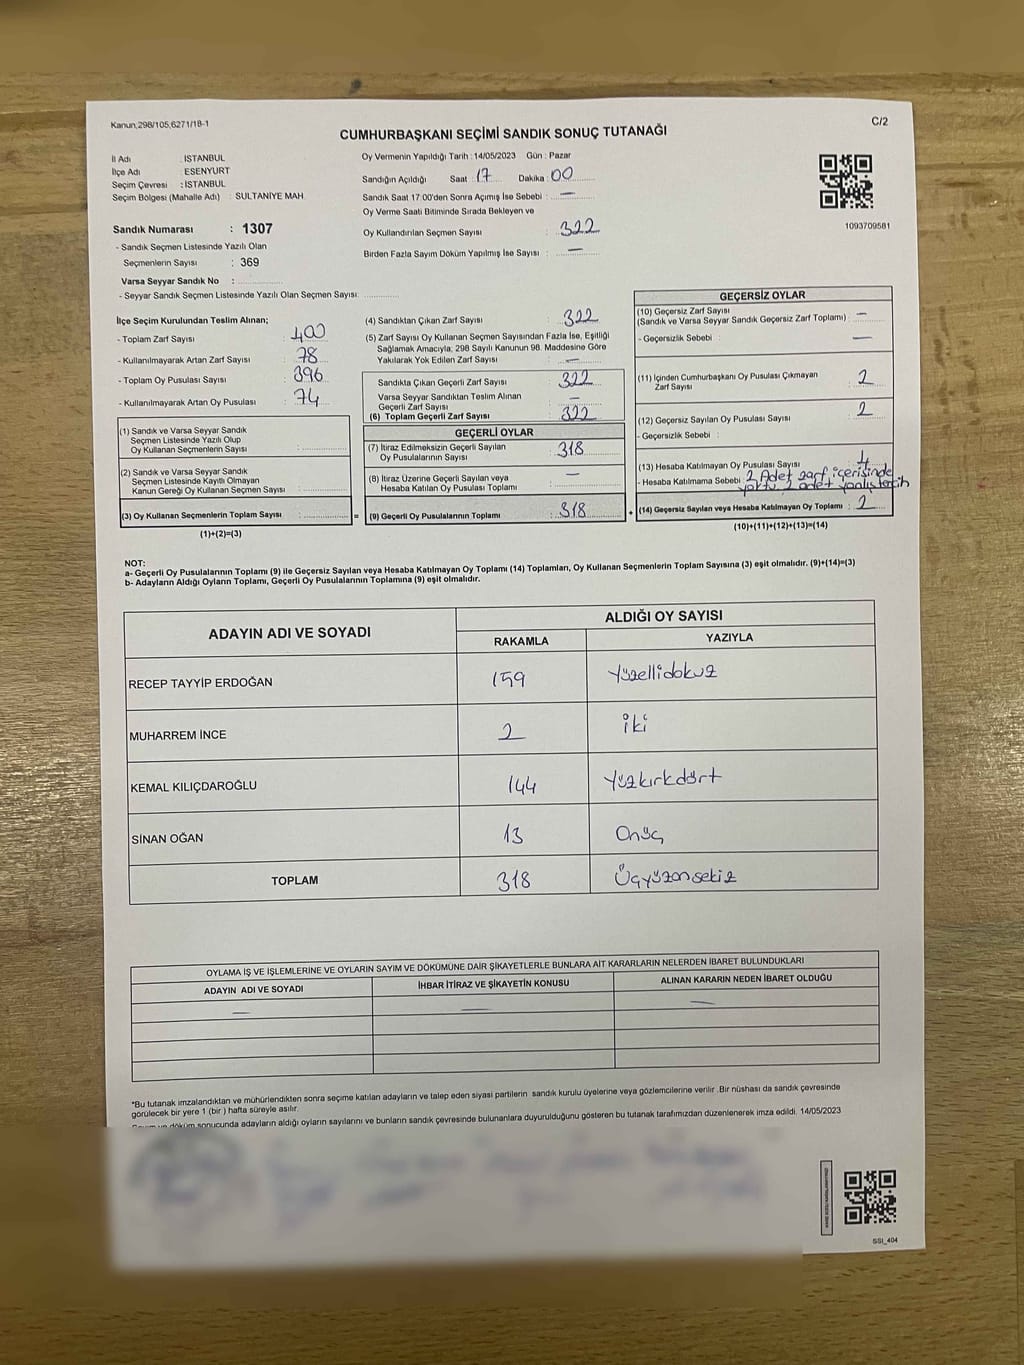 Kanun,298/105,6271/18-1
C/2
CUMHURBAŞKANI SEÇİMİ SANDIK SONUÇ TUTANAĞI
İl Adı : İSTANBUL
İlçe Adı : ESENYURT
Seçim Çevresi : İSTANBUL
Seçim Bölgesi (Mahalle Adı) : SULTANİYE MAH.
Oy Vermenin Yapıldığı Tarih : 14/05/2023 Gün : Pazar
Sandığın Açıldığı Saat : 17 Dakika : 00
Sandık Saat 17:00'den Sonra Açılmış İse Sebebi : —
Oy Verme Saati Bitiminde Sırada Bekleyen ve
Oy Kullandırılan Seçmen Sayısı : 322
Birden Fazla Sayım Döküm Yapılmış İse Sayısı : —
1093709581
Sandık Numarası : 1307
- Sandık Seçmen Listesinde Yazılı Olan
Seçmenlerin Sayısı : 369
Varsa Seyyar Sandık No :
- Seyyar Sandık Seçmen Listesinde Yazılı Olan Seçmen Sayısı:
İlçe Seçim Kurulundan Teslim Alınan;
- Toplam Zarf Sayısı : 400
- Kullanılmayarak Artan Zarf Sayısı : 78
- Toplam Oy Pusulası Sayısı : 396
- Kullanılmayarak Artan Oy Pusulası : 74
(1) Sandık ve Varsa Seyyar Sandık
Seçmen Listesinde Yazılı Olup
Oy Kullanan Seçmenlerin Sayısı :
(2) Sandık ve Varsa Seyyar Sandık
Seçmen Listesinde Kayıtlı Olmayan
Kanun Gereği Oy Kullanan Seçmen Sayısı :
(3) Oy Kullanan Seçmenlerin Toplam Sayısı :
(1)+(2)=(3)
=
(4) Sandıktan Çıkan Zarf Sayısı : 322
(5) Zarf Sayısı Oy Kullanan Seçmen Sayısından Fazla İse, Eşitliği
Sağlamak Amacıyla, 298 Sayılı Kanunun 98. Maddesine Göre
Yakılarak Yok Edilen Zarf Sayısı : —
Sandıkta Çıkan Geçerli Zarf Sayısı : 322
Varsa Seyyar Sandıktan Teslim Alınan
Geçerli Zarf Sayısı : —
(6) Toplam Geçerli Zarf Sayısı : 322
GEÇERLİ OYLAR
(7) İtiraz Edilmeksizin Geçerli Sayılan
Oy Pusulalarının Sayısı : 318
(8) İtiraz Üzerine Geçerli Sayılan veya
Hesaba Katılan Oy Pusulası Toplamı : —
(9) Geçerli Oy Pusulalarının Toplamı : 318
+
GEÇERSİZ OYLAR
(10) Geçersiz Zarf Sayısı
(Sandık ve Varsa Seyyar Sandık Geçersiz Zarf Toplamı) : —
- Geçersizlik Sebebi : —
(11) İçinden Cumhurbaşkanı Oy Pusulası Çıkmayan
Zarf Sayısı : 2
(12) Geçersiz Sayılan Oy Pusulası Sayısı : 2
- Geçersizlik Sebebi :
(13) Hesaba Katılmayan Oy Pusulası Sayısı : 4
- Hesaba Katılmama Sebebi : 2 Adet zarf içerisinde
yoktu 2 adet yanlış tercih
(14) Geçersiz Sayılan veya Hesaba Katılmayan Oy Toplamı : 2
(10)+(11)+(12)+(13)=(14)
NOT:
a- Geçerli Oy Pusulalarının Toplamı (9) ile Geçersiz Sayılan veya Hesaba Katılmayan Oy Toplamı (14) Toplamları, Oy Kullanan Seçmenlerin Toplam Sayısına (3) eşit olmalıdır. (9)+(14)=(3)
b- Adayların Aldığı Oyların Toplamı, Geçerli Oy Pusulalarının Toplamına (9) eşit olmalıdır.
ADAYIN ADI VE SOYADI
ALDIĞI OY SAYISI
RAKAMLA YAZIYLA
RECEP TAYYİP ERDOĞAN 159 Yüzellidokuz
MUHARREM İNCE 2 iki
KEMAL KILIÇDAROĞLU 144 Yüzkırkdört
SİNAN OĞAN 13 Onüç
TOPLAM 318 Üçyüzonsekiz
OYLAMA İŞ VE İŞLEMLERİNE VE OYLARIN SAYIM VE DÖKÜMÜNE DAİR ŞİKAYETLERLE BUNLARA AİT KARARLARIN NELERDEN İBARET BULUNDUKLARI
ADAYIN ADI VE SOYADI İHBAR İTİRAZ VE ŞİKAYETİN KONUSU ALINAN KARARIN NEDEN İBARET OLDUĞU
— — —
*Bu tutanak imzalandıktan ve mühürlendikten sonra seçime katılan adayların ve talep eden siyasi partilerin sandık kurulu üyelerine veya gözlemcilerine verilir .Bir nüshası da sandık çevresinde
görülecek bir yere 1 (bir ) hafta süreyle asılır.
döküm sonucunda adayların aldığı oyların sayılarını ve bunların sandık çevresinde bulunanlara duyurulduğunu gösteren bu tutanak tarafımızdan düzenlenerek imza edildi. 14/05/2023
SSI_404